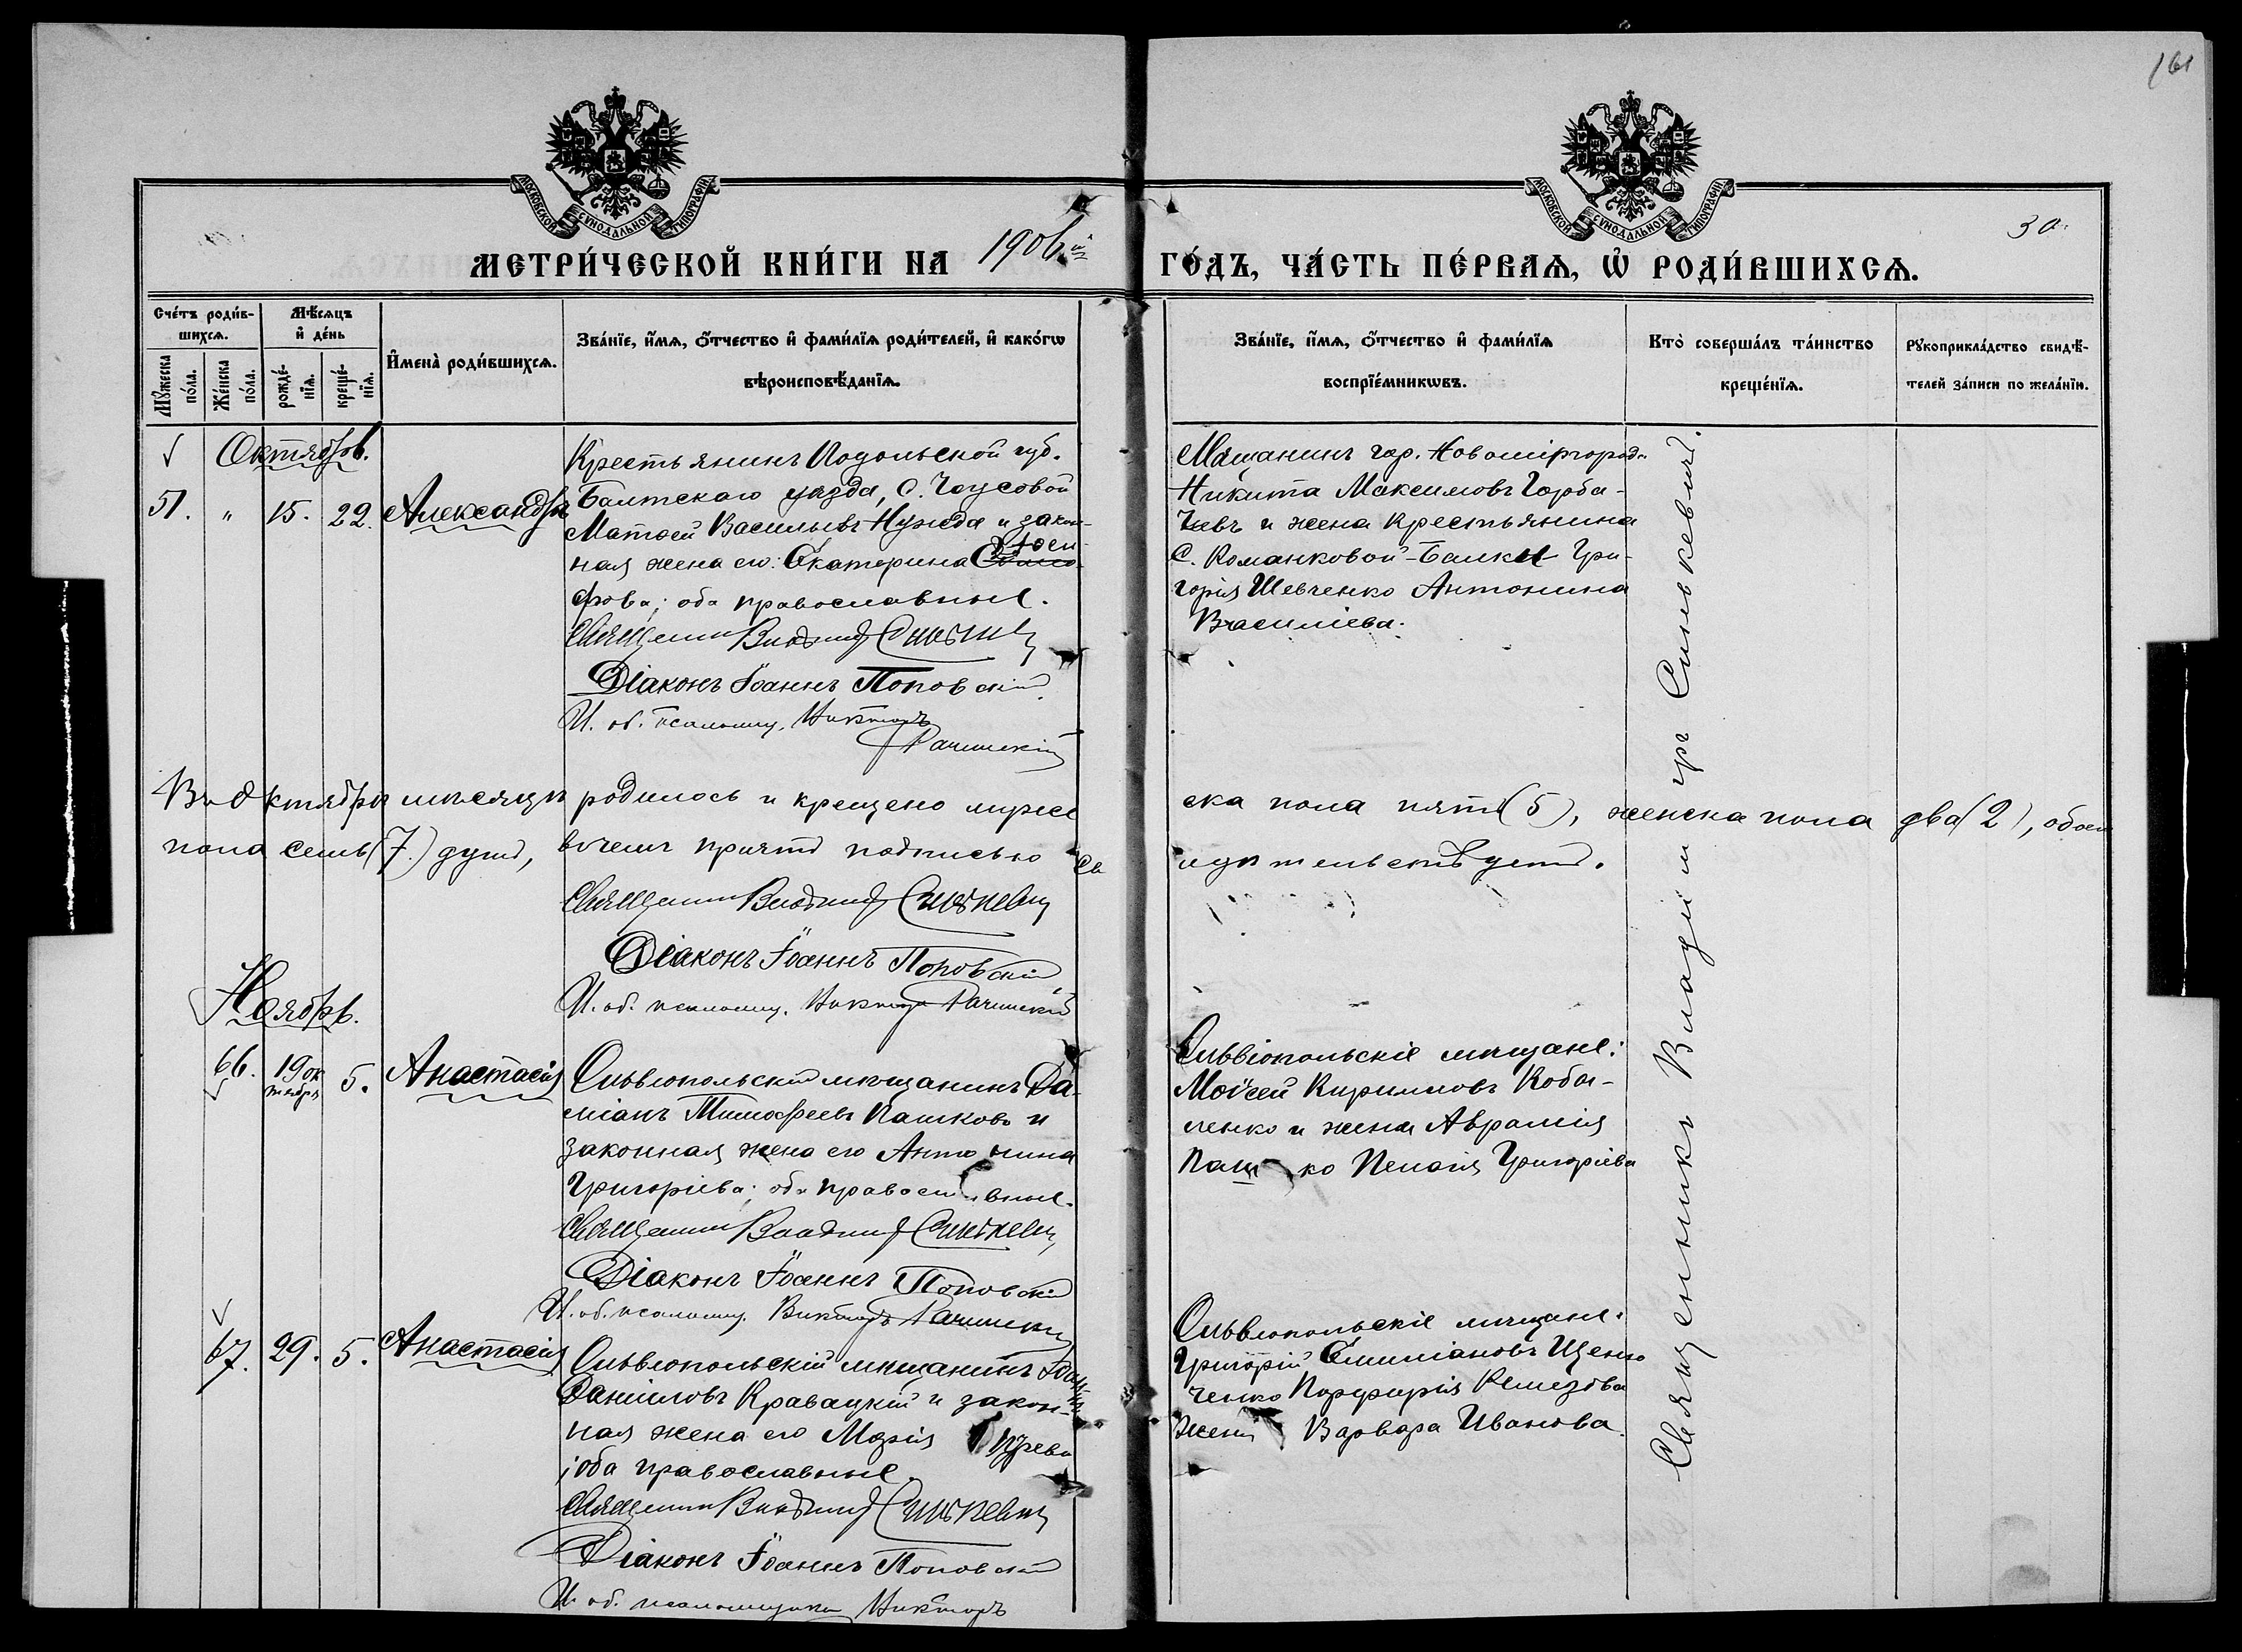 161
30.
МОСКОВСКОЙ СУНОДАЛЬНОЙ ТИПОГРАФІИ.
МОСКОВСКОЙ СУНОДАЛЬНОЙ ТИПОГРАФІИ.
МЕТРИ́ЧЕСКОЙ КНИ́ГИ НА 1906й ГО́ДЪ, ЧА́СТЬ ПЕ́РВАѦ, Ѡ҆ РОДИ́ВШИХСѦ.
Сче́тъ роди́в-
шихсѧ.
Мѣ́сѧцъ
и҆ де́нь
Мꙋ́жеска
по́ла.
Же́нска
по́ла.
рожде́-
нїѧ.
креще́-
нїѧ.
И҆мена̀ роди́вшихсѧ.
Зва́нїе, и҆́мѧ, ѻ҆́тчество и҆ фами́лїѧ роди́телей, и҆ како́гѡ
вѣроисповѣ́данїѧ.
Зва́нїе, и҆́мѧ, ѻ҆́тчество и҆ фами́лїѧ
воспрїе́мникѡвъ.
Кто̀ соверша́лъ та́инство
креще́нїѧ.
Рꙋкоприкла́дство свидѣ́-
телей за́писи по жела́нїю.
Октябрь.
51. " 15. 22. Александръ
Крестьянинъ Подольской губ.
Балтскаго уѣзда, с. Чаусовой
Матѳей Васильевъ Нужда и закон-
ная жена его: Екатерина
фова; оба православные.
Священникъ Владимиръ Синькевич
Діаконъ Іоаннъ Поповскій
И. об. псаломщ. Викторъ
Рачинскій
Мѣщанинъ гор. Новомиргорода
Никита Максимовъ Горба-
чевъ и жена крестьянина
с. Романковой-Балки Гри-
горія Шевченко Антонина
Васильева.
Въ Октябрѣ мѣсяцѣ родилось и крещено мужес
ска пола пять (5), женска пола два (2), обоего
пола семь (7.) душъ, въ чемъ причтъ подписью св
идѣтельствуетъ.
Священникъ Владимиръ Синькевич
Діаконъ Іоаннъ Поповскій
И. об. псаломщ. Викторъ Рачинскій
Ноябрь.
66. 19 ок
тября 5. Анастасія
Ольвіопольскій мѣщанинъ Да-
міанъ Тимофеевъ Пашковъ и
законная жена его Антонина
Григорьева; оба православные.
Священникъ Владимиръ Синькевич
Діаконъ Іоаннъ Поповскій
И. об. псаломщ. Викторъ Рачинскій
Ольвіопольскіе мѣщане:
Моисей Кирилловъ Коба-
ленко и жена Аврамія
Паш ко Пелагія Григорьева
67. 29. 5. Анастасія
Ольвіопольскій мѣщанинъ Іоаннъ
Даниловъ Кравацкій и закон-
ная жена его Марія
; оба православные.
Священникъ Владимиръ Синькевич
Діаконъ Іоаннъ Поповскій
И. об. псаломщика Викторъ
Ольвіопольскіе мѣщане:
Григорій Емиліановъ Щен
ченко Порфирія Ремезова
жена Варвара Иванова
Священникъ Владиміръ Синькевичъ.